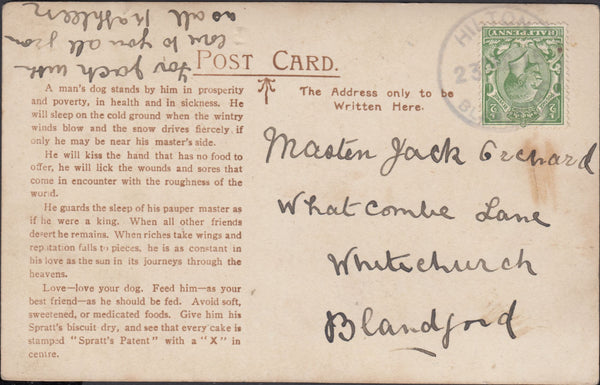 For Jack with
love to you all from
as all Kathleen
POST CARD.
The Address only to be
Written Here.
A man's dog stands by him in prosperity
and poverty, in health and in sickness. He
will sleep on the cold ground when the wintry
winds blow and the snow drives fiercely, if
only he may be near his master's side.
He will kiss the hand that has no food to
offer, he will lick the wounds and sores that
come in encounter with the roughness of the
world.
He guards the sleep of his pauper master as
if he were a king. When all other friends
desert he remains. When riches take wings and
reputation falls to pieces, he is as constant in
his love as the sun in its journeys through the
heavens.
Love—love your dog. Feed him—as your
best friend—as he should be fed. Avoid soft,
sweetened, or medicated foods. Give him his
Spratt's biscuit dry, and see that every cake is
stamped "Spratt's Patent" with a "X" in
centre.
HILTON
23
HALFPENNY
Master Jack Orchard
Whatcombe Lane
Whitechurch
Blandford